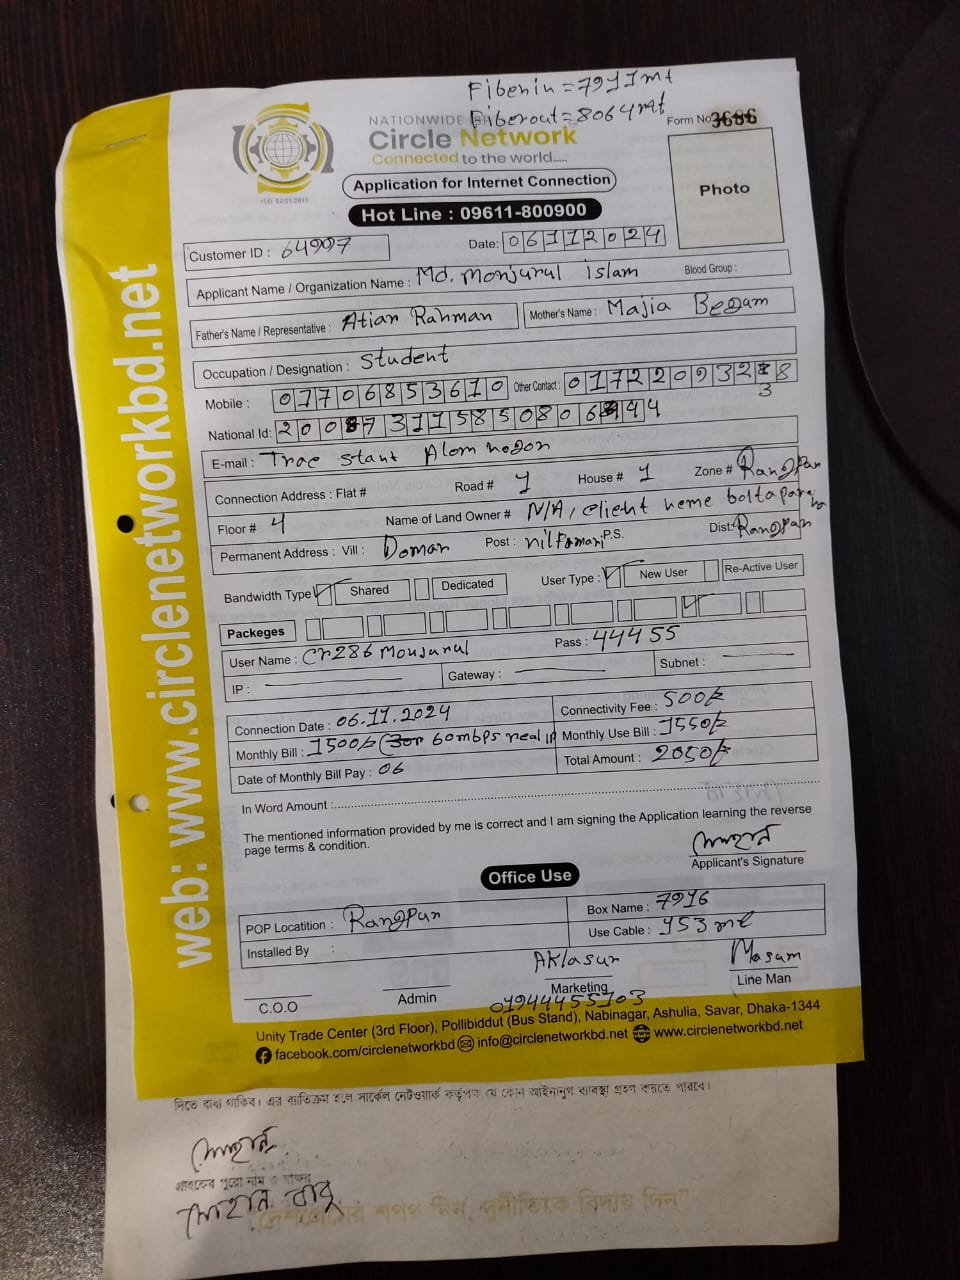 Fiberin = 7911mt
Fiberout = 8064mt
NATIONWIDE
Form No 3686
Circle Network
Connected to the world.....
ISO 9001:2015
Application for Internet Connection
Photo
Hot Line : 09611-800900
Customer ID : 64997
Date: 06112024
Applicant Name / Organization Name : Md. Monjurul islam
Blood Group :
Father's Name / Representative : Atiar Rahman
Mother's Name : Majia Begum
Occupation / Designation : Student
Mobile : 01706853610
Other Contact : 017220932
3
National Id:
E-mail :
Connection Address : Flat # Road # 1 House # 1 Zone # Rangpur
Floor # 4 Name of Land Owner # N/A, client heme
Permanent Address : Vill : Domar Post : nilfamari P.S. Dist: Rangpur
Bandwidth Type Shared Dedicated User Type : New User Re-Active User
Packeges
User Name : Cr286 Monjurul Pass : 44455
IP : Gateway : Subnet :
Connection Date : 06.11.2024 Connectivity Fee : 500/-
Monthly Bill : 1500/- (For 60mbps real ip Monthly Use Bill : 1550/-
Date of Monthly Bill Pay : 06 Total Amount : 2050/-
In Word Amount :
The mentioned information provided by me is correct and I am signing the Application learning the reverse
page terms & condition.
Applicant's Signature
Office Use
POP Locatition : Rangpur Box Name : 7916
Installed By : Use Cable : 153 mt
Aklasur Masum
C.O.O Admin Marketing Line Man
01944455103
Unity Trade Center (3rd Floor), Pollibiddut (Bus Stand), Nabinagar, Ashulia, Savar, Dhaka-1344
facebook.com/circlenetworkbd info@circlenetworkbd.net www.circlenetworkbd.net
web: www.circlenetworkbd.net
দিতে বাধ্য থাকিব। এর ব্যতিক্রম হলে সার্কেল নেটওয়ার্ক কর্তৃপক্ষ যে কোন আইনানুগ ব্যবস্থা গ্রহণ করতে পারবে।
গ্রাহকের পুরো নাম ও স্বাক্ষর
দেশপ্রেমের শপথ নিন, দুর্নীতিকে বিদায় দিন"